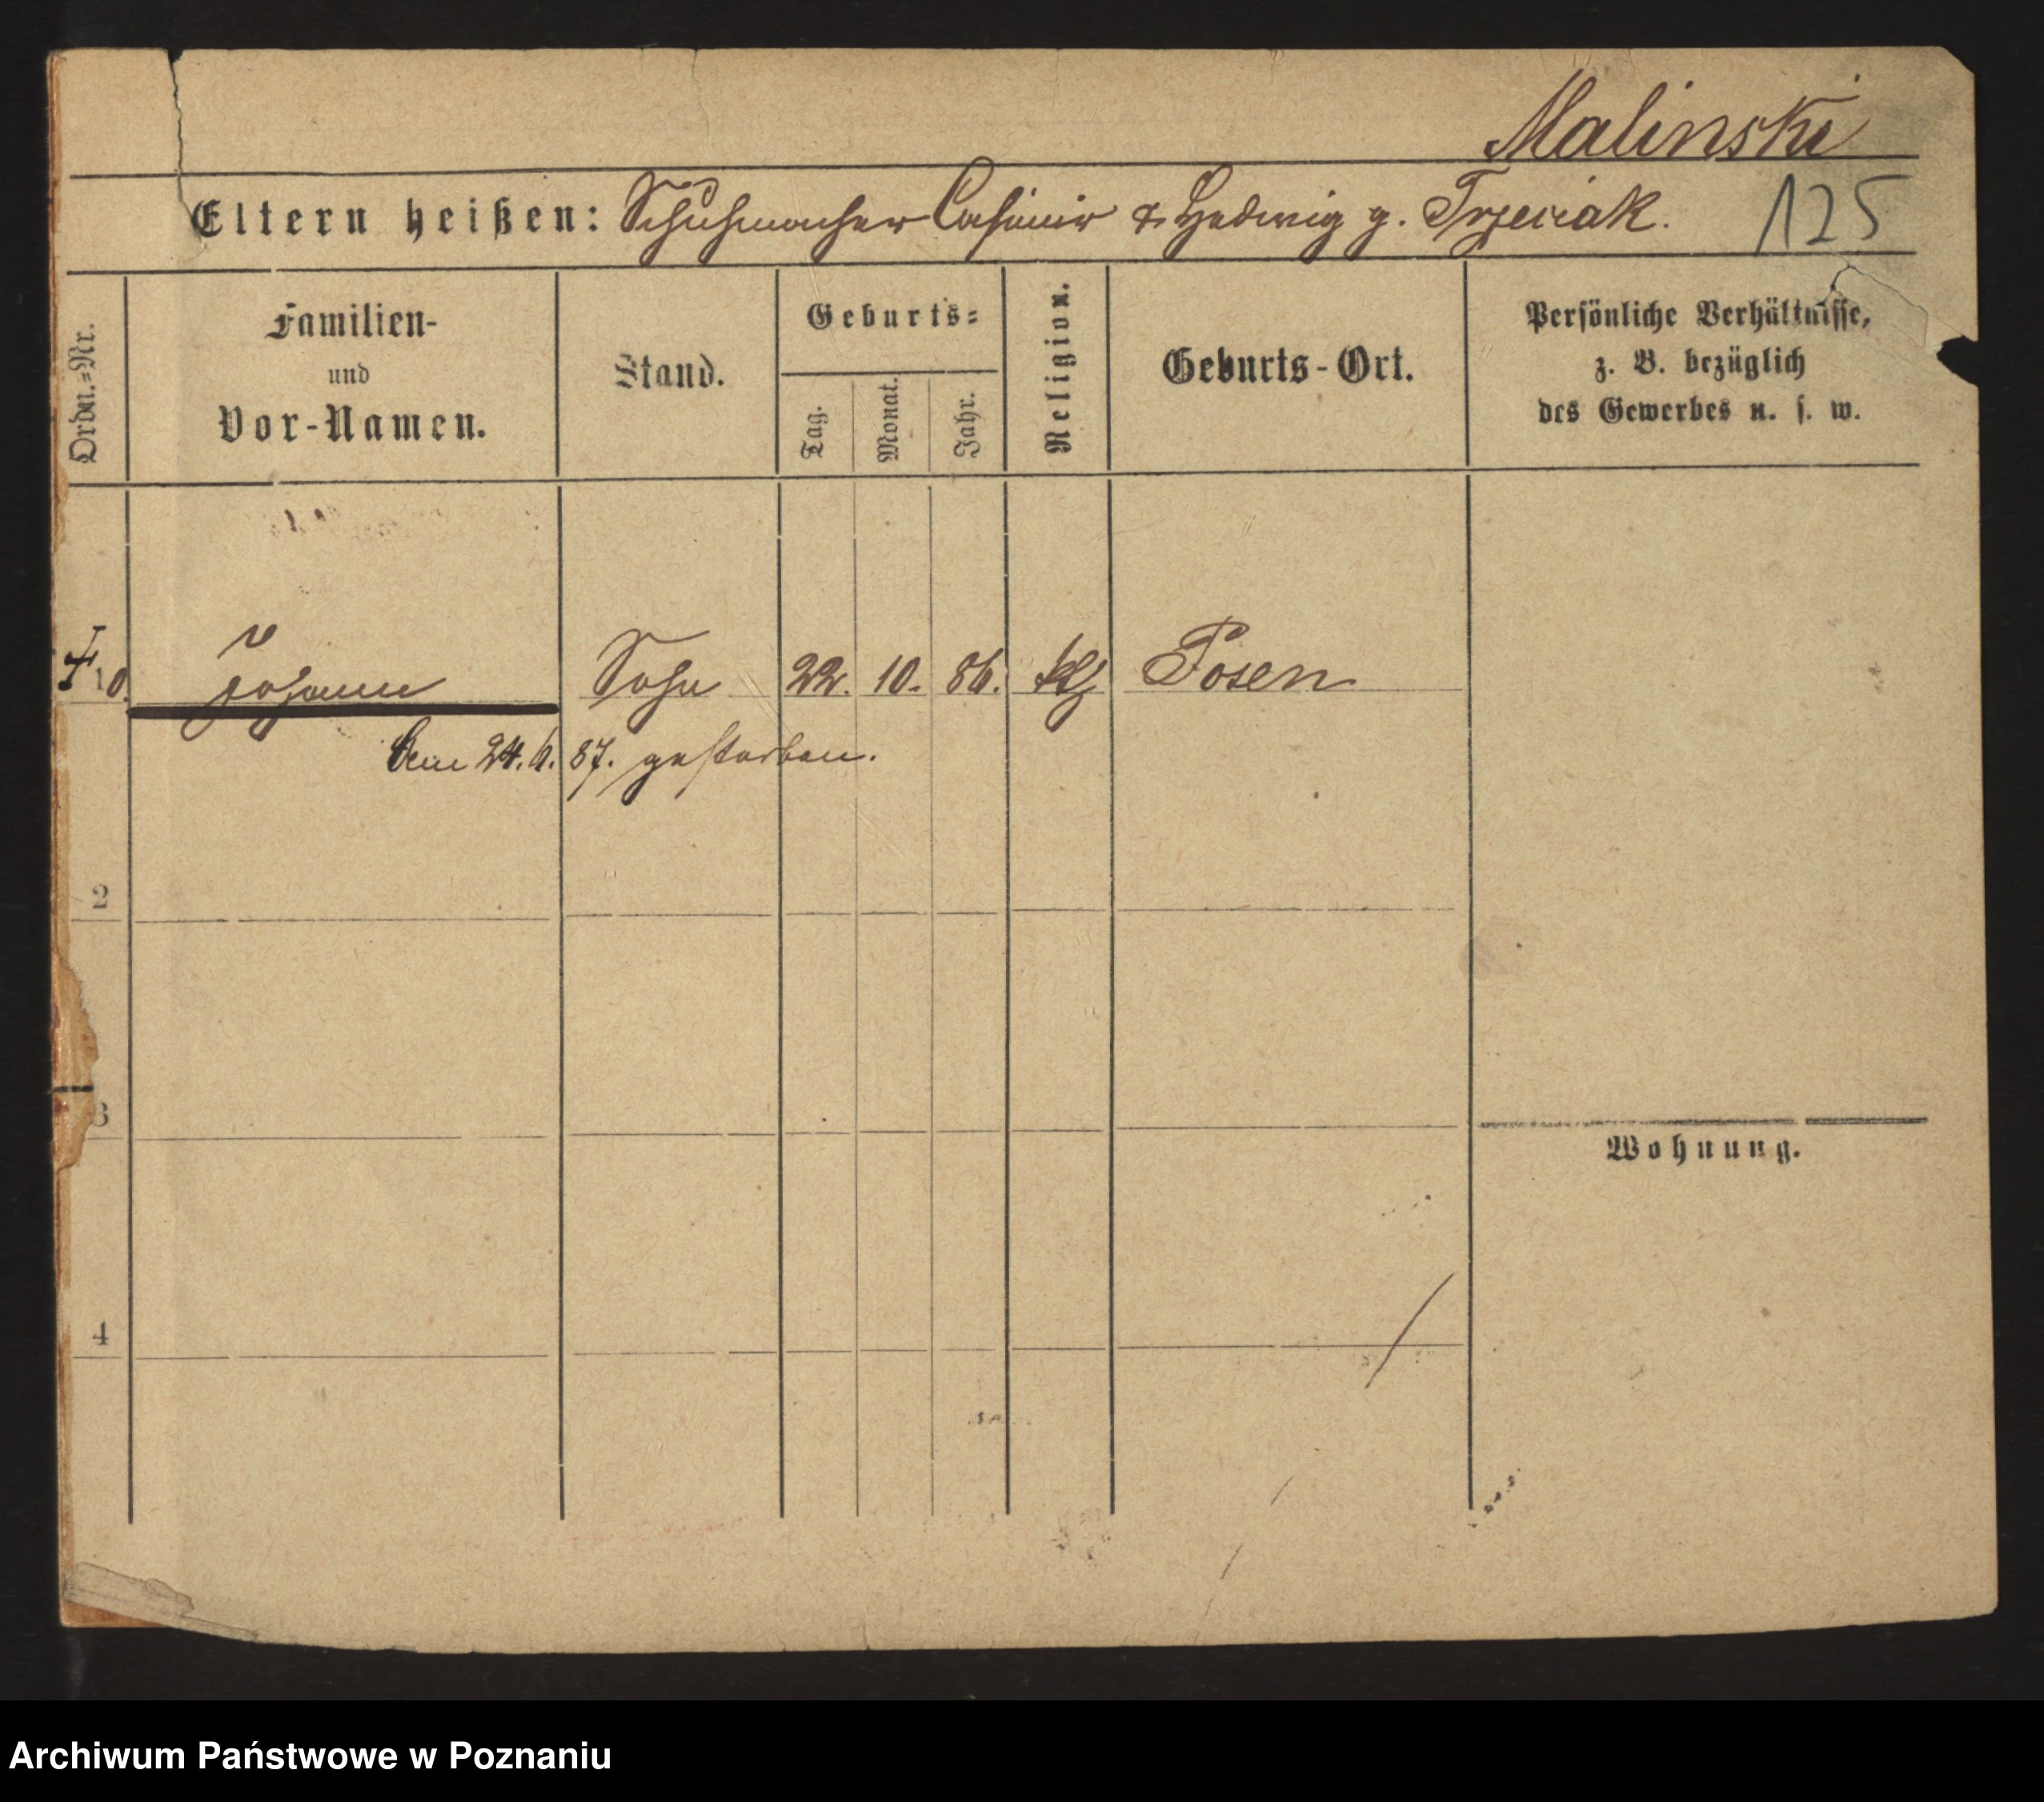 Malinski
Eltern heißen: Schuhmacher Casimir & Hedwig g. Trzeciak. 125
Ordn.=Nr.
Familien-
und
Vor-Namen.
Stand.
Geburts=
Tag.
Monat.
Jahr.
Religion.
Geburts-Ort.
Persönliche Verhältnisse,
z. B. bezüglich
des Gewerbes u. s. w.
Johann Sohn 22. 10. 86. Posen
Am 24. 6. 87. gestorben.
2
3
Wohnung.
4
Archiwum Państwowe w Poznaniu